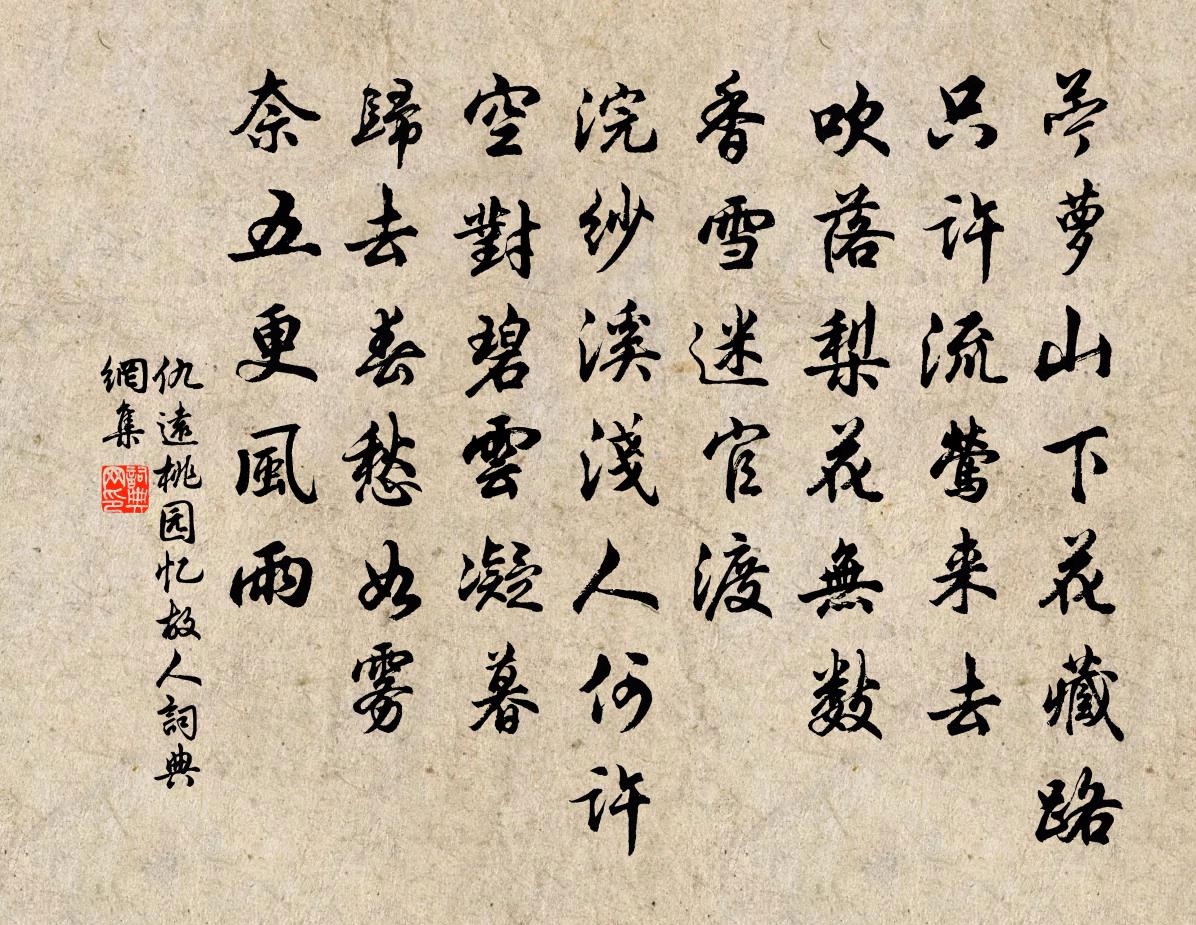 苎萝山下花藏路
只许流鶯来去
吹落梨花無數
香雪迷官渡
浣紗溪淺人何许
空對碧雲凝暮
歸去春愁如雾
奈五更風雨
仇遠桃园忆故人詞典
網集
詞典
网印